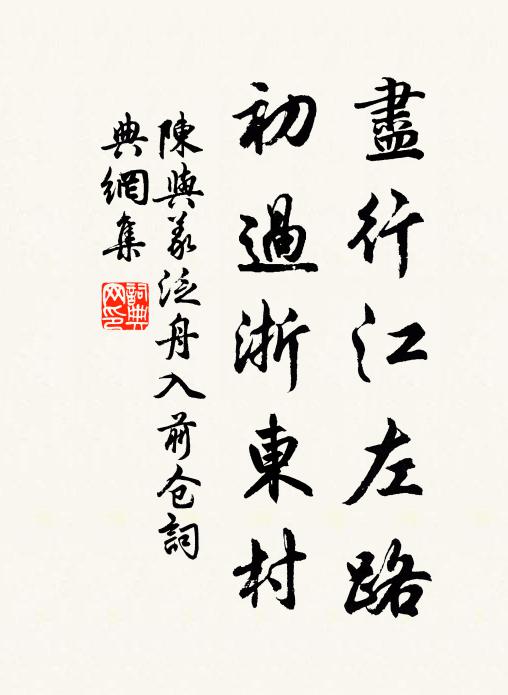 盡行江左路
初過浙東村
陳與義泛舟入前仓詞
典網集
詞典網印